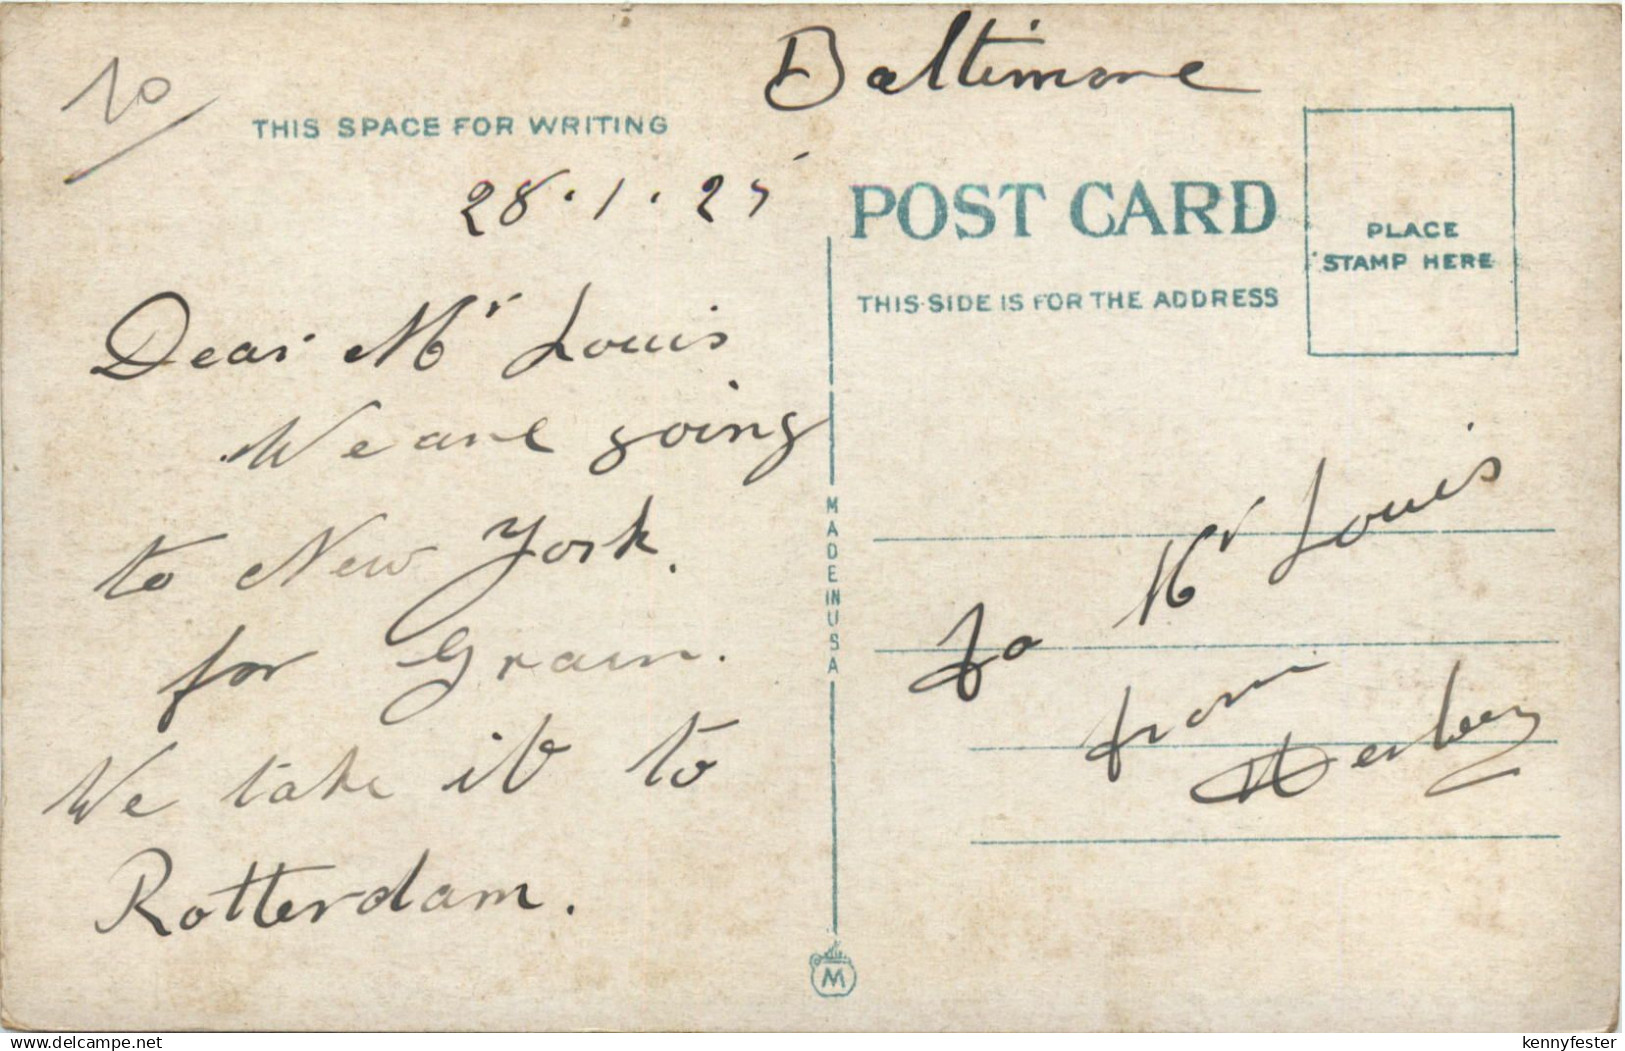 Baltimore
10/
THIS SPACE FOR WRITING
28.1.25
Dear Mr Louis
We are going
to New York.
for Grain.
We take it to
Rotterdam.
POST CARD
THIS SIDE IS FOR THE ADDRESS
PLACE
STAMP HERE
MADE IN USA
To Mr Louis
from
M
delcampe.net
kennyfester